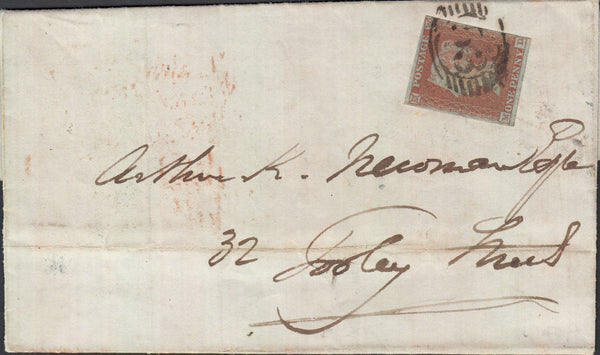 POSTAGE
ONE PENNY
Arthur K. Newman Esqr
32 Tooley Street